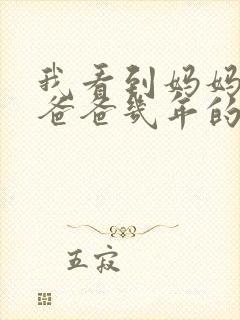 我看到妈妈
爸爸几年的
五寂